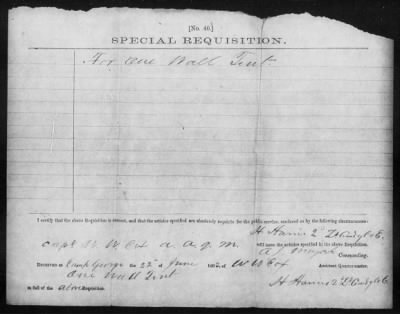 [No. 40.]
SPECIAL REQUISITION.
For One Wall Tent.
I certify that the above Requisition is correct, and that the articles specified are absolutely requisite for the public service, rendered so by the following circumstances:
H Harris 2"
Capt W W Cox a. a. q. m. will issue the articles specified in the above Requisition.
Commanding.
Received at Camp George the 22d of June 186 of W W Cox Assistant Quartermaster,
One Wall Tent
in full of the above Requisition.
H Harris 2d